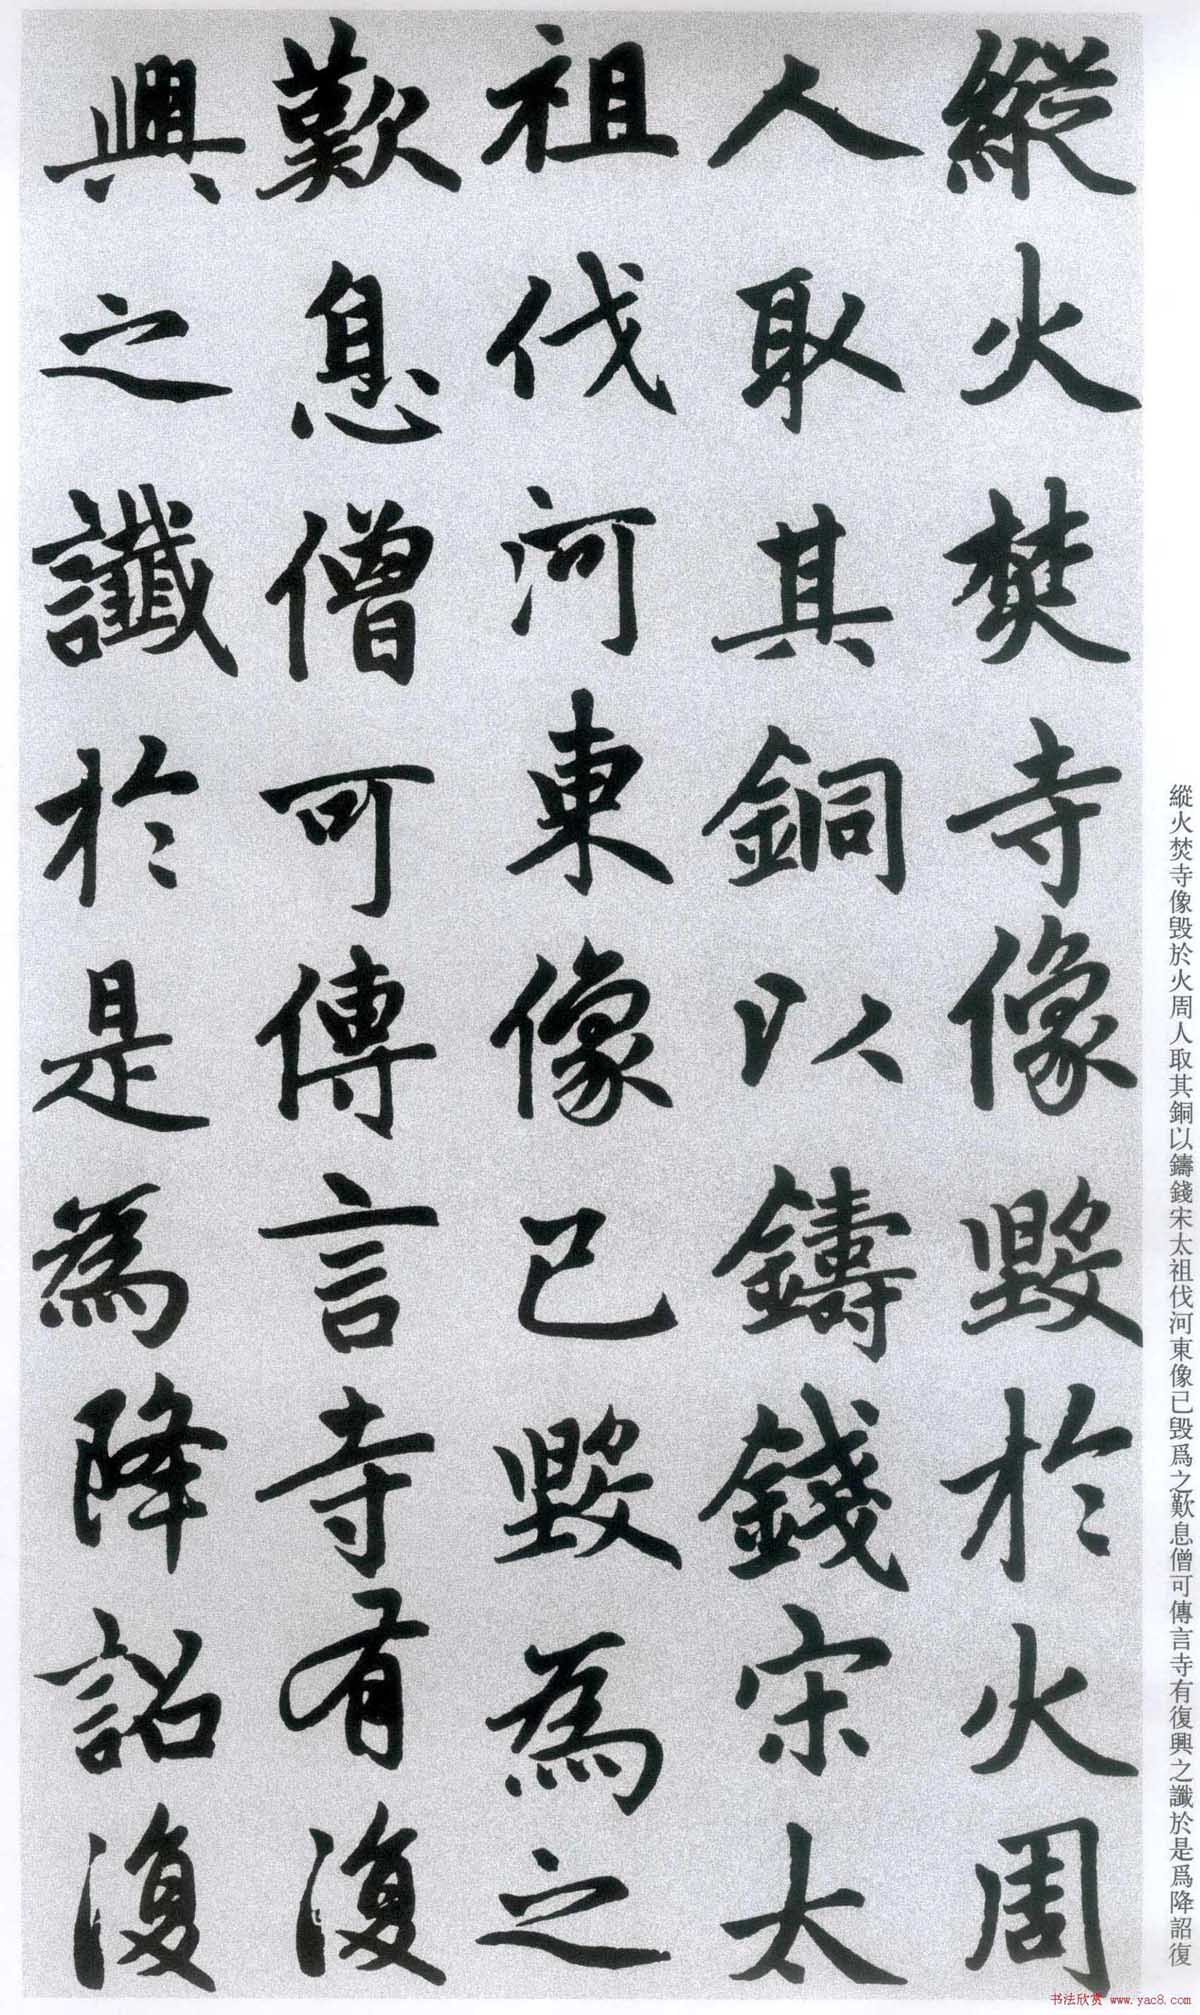 縱火焚寺像毁於火周
人取其銅以鑄錢宋太
祖伐河東像已毁為之
歎息僧可傳言寺有復
興之讖於是為降詔復
縱火焚寺像毁於火周人取其銅以鑄錢宋太祖伐河東像已毁爲之歎息僧可傳言寺有復興之讖於是爲降詔復
书法欣赏 www.yac8.com